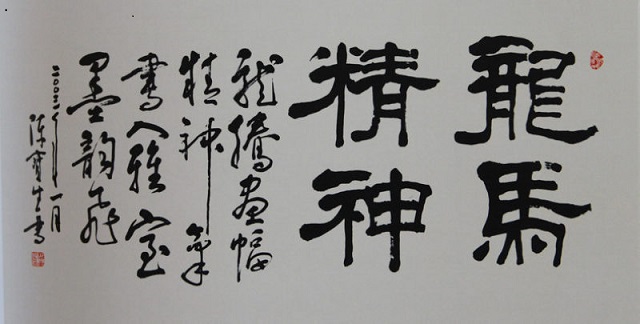 龍馬
精神
龍騰畫幅
精神氣
書入雅室
墨韻飛
二〇〇二年一月
陳寶生書